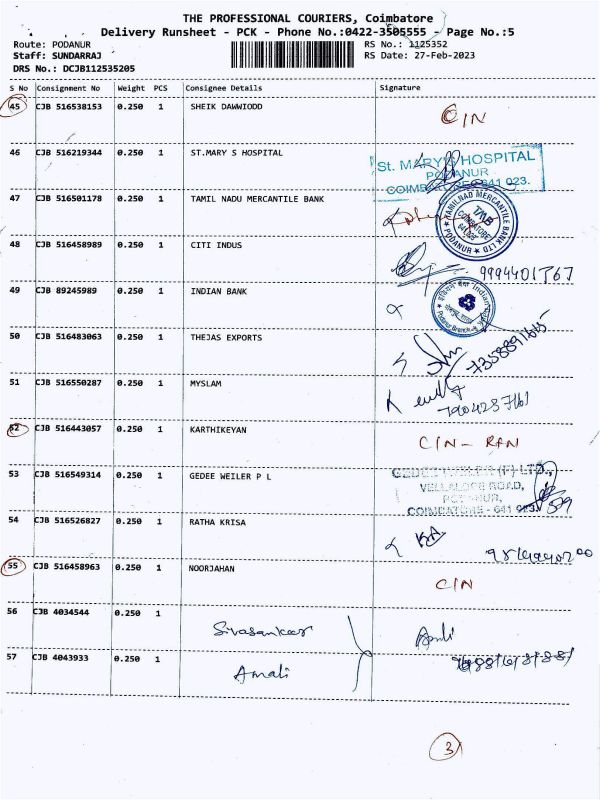 THE PROFESSIONAL COURIERS, Coimbatore
Delivery Runsheet - PCK - Phone No.:0422-3505555 - Page No.:5
Route: PODANUR RS No.: 1125352
Staff: SUNDARRAJ RS Date: 27-Feb-2023
DRS No.: DCJB112535205
S No Consignment No Weight PCS Consignee Details Signature
45 CJB 516538153 0.250 1 SHEIK DAWWIODD CIN
46 CJB 516219344 0.250 1 ST.MARY S HOSPITAL
St. MARY'S HOSPITAL
PODANUR
COIMBATORE-641 023.
47 CJB 516501178 0.250 1 TAMIL NADU MERCANTILE BANK
TAMILNAD MERCANTILE BANK LTD
TMB
COIMBATORE
PODANUR
48 CJB 516458989 0.250 1 CITI INDUS
9994401767
49 CJB 89245989 0.250 1 INDIAN BANK
50 CJB 516483063 0.250 1 THEJAS EXPORTS
51 CJB 516550287 0.250 1 MYSLAM
7904287161
52 CJB 516443057 0.250 1 KARTHIKEYAN CIN - RFN
53 CJB 516549314 0.250 1 GEDEE WEILER P L
GEDEE WEILER (P) LTD.,
VELLALORE ROAD,
PODANUR,
COIMBATORE - 641 023.
54 CJB 516526827 0.250 1 RATHA KRISA
55 CJB 516458963 0.250 1 NOORJAHAN CIN
56 CJB 4034544 0.250 1 Sivasankar
57 CJB 4043933 0.250 1 Amali
3